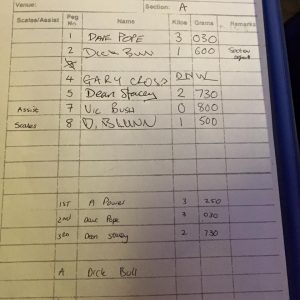 Venue: Section: A
Scales/Assist Peg No Name Kilos Grams Remarks
1 DAVE POPE 3 030
2 Dick Bull 1 600 Section
4 GARY CROSS DNW
5 Dean Stacey 2 730
Assist 7 Vic Bush 0 800
Scales 8 D. 1 500
1ST A Power 3 250
2nd Dave Pope 3 030
3RD Dean Stacey 2 730
A Dick Bull